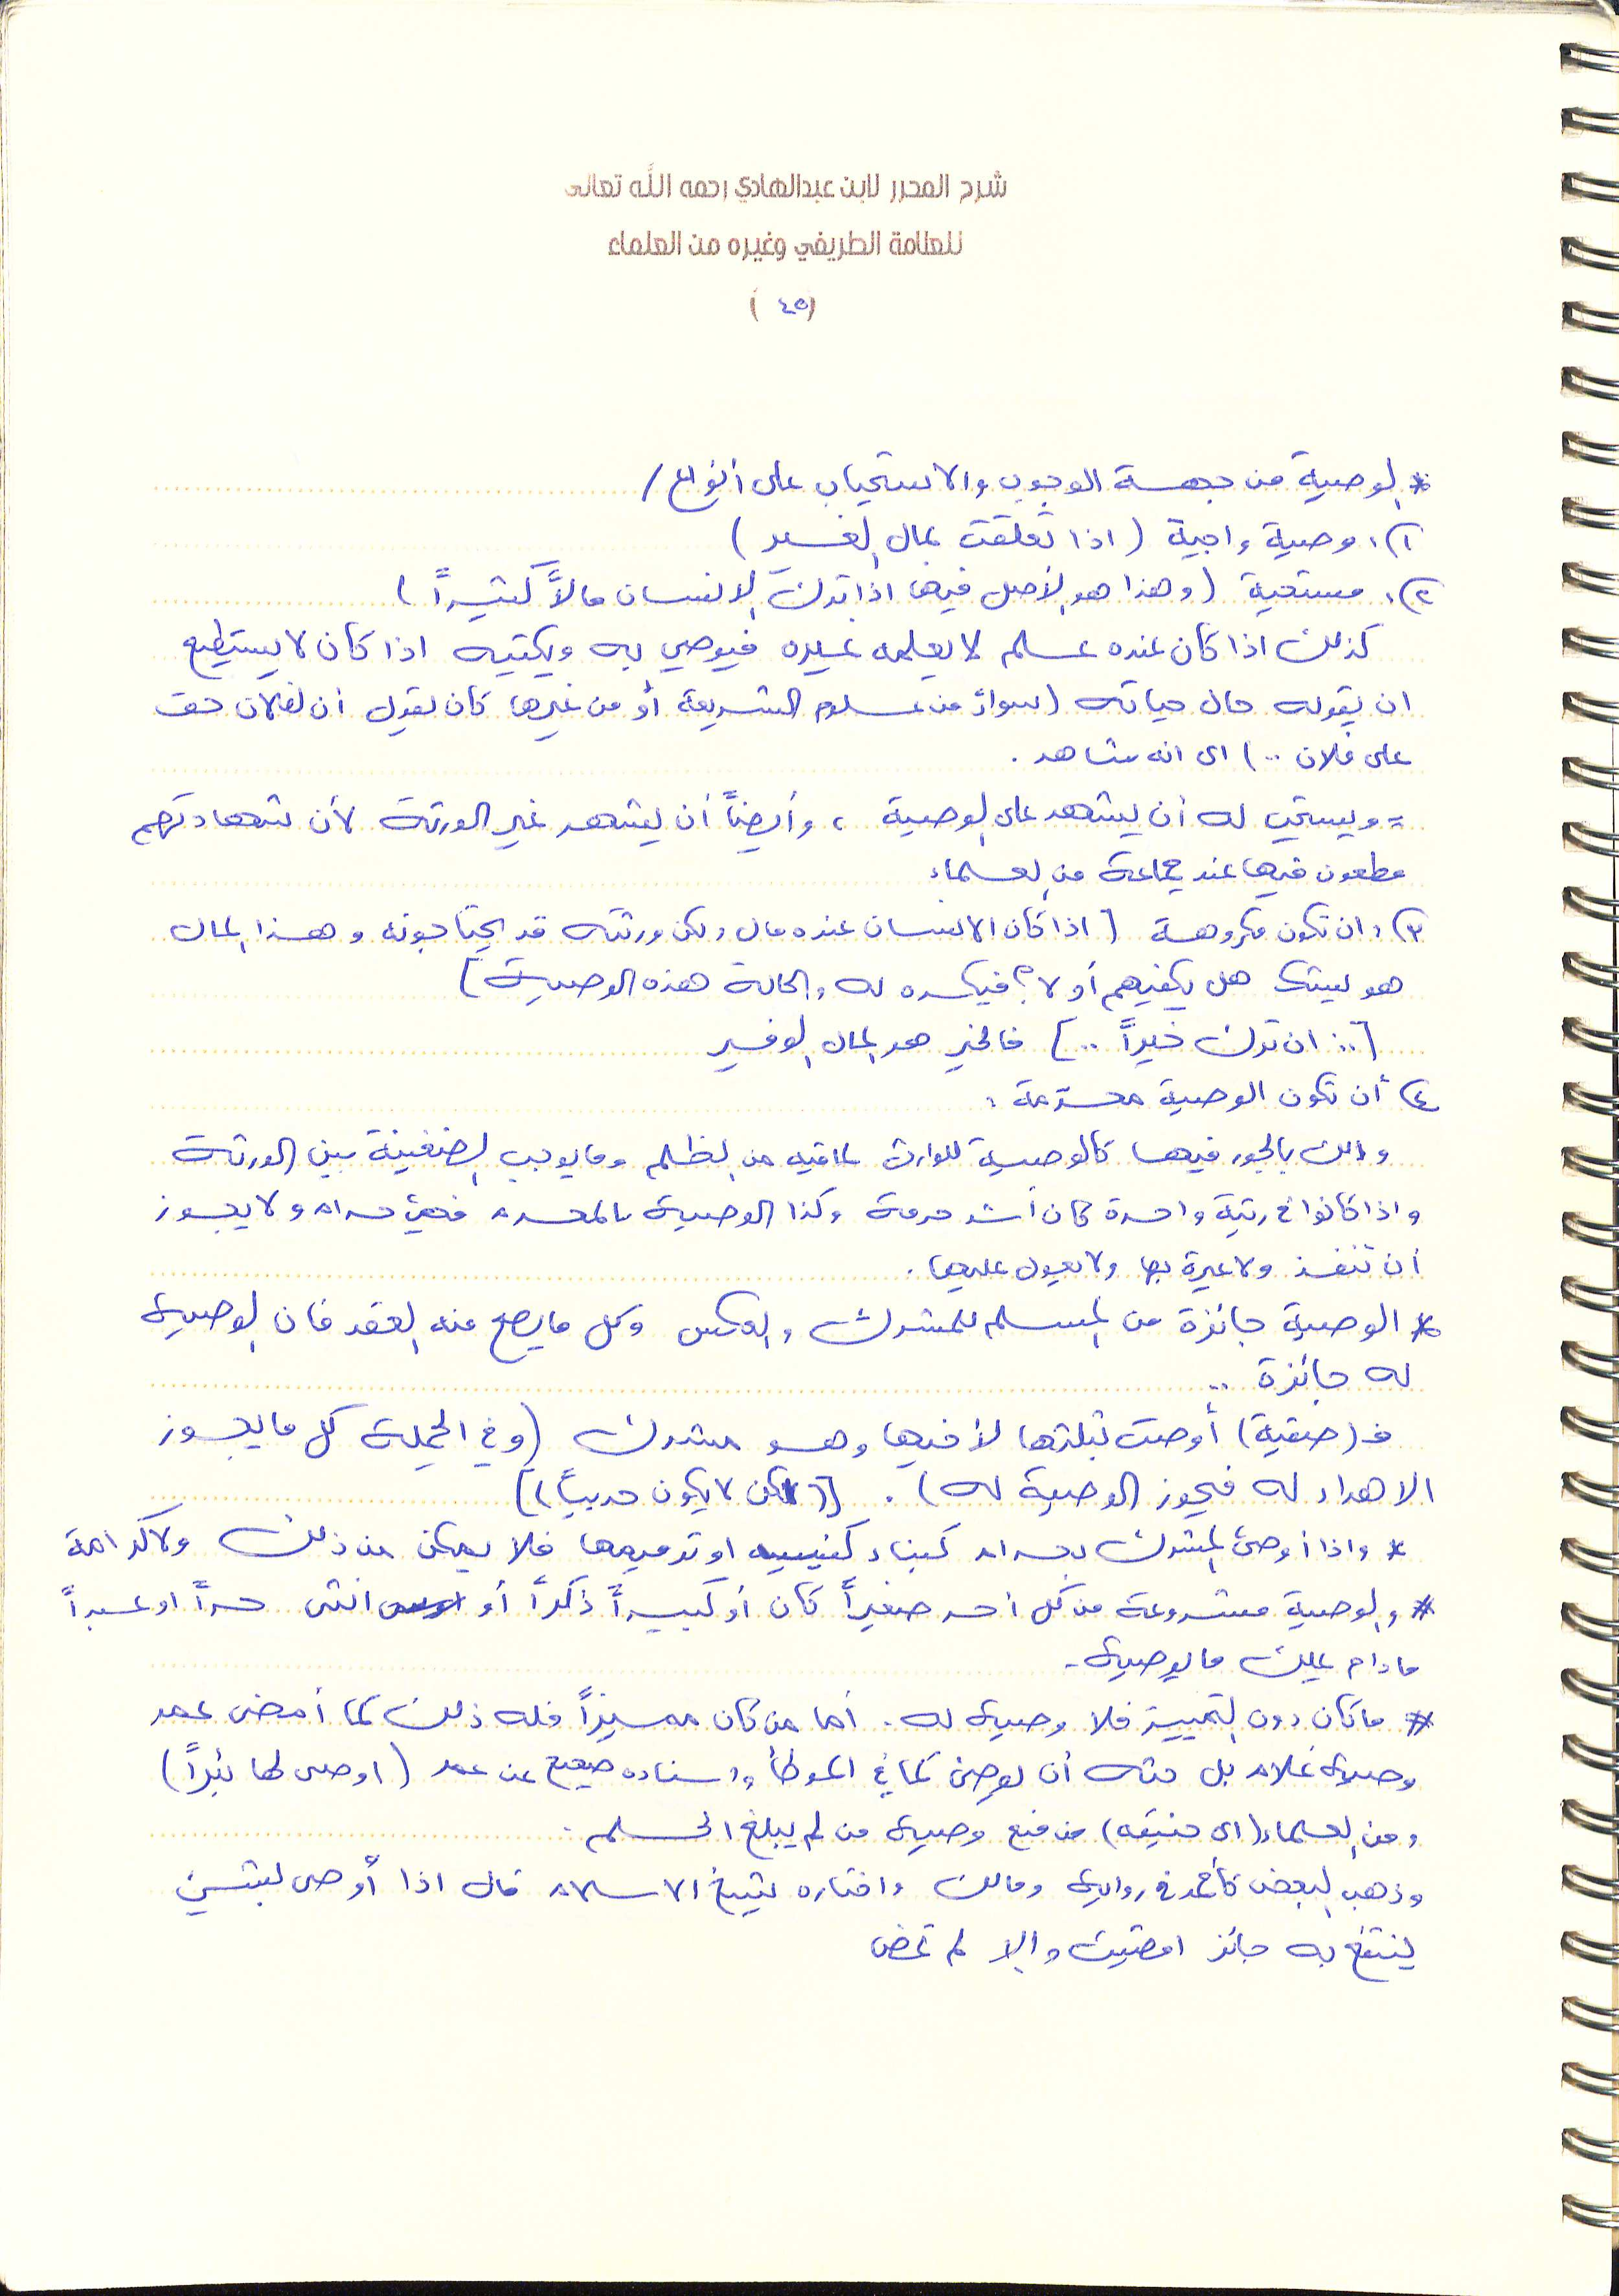 شرح المحرر لابن عبدالهادي رحمه الله تعالى
للعلامة الطريفي وغيره من العلماء
(٤٥)
* الوصية من جهة الوجوب والاستحباب على أنواع /
١). وصية واجبة (اذا تعلقت بمال الغير)
٢). مستحبة (وهذا هو الأصل فيها اذا ترك الانسان مالاً كثيراً)
كذلك اذا كان عنده علم لا يعلمه غيره فيوصي به ويكتبه اذا كان لا يستطيع
ان يقوله حال حياته (سواءً من علوم الشريعة أو من غيرها كأن يقول ان لفلان حق
على فلان ..) اى انه شاهد .
= ويستحب له أن يشهد على الوصية ، وأيضاً أن يشهد غير الورثة لأن شهادتهم
مطعون فيها عند جماعة من العلماء
٣). ان تكون مكروهة [اذا كان الانسان عنده مال ولكن ورثته قد يحتاجونه وهذا المال
هو يشك هل يكفيهم أو لا؟ فيكره له والحالة هذه الوصية]
[.. ان ترك خيراً ..] فالخير هو المال الوفير
٤) أن تكون الوصية محرمة :
وذلك بالجور فيها كالوصية للوارث لما فيه من الظلم وما يوجب الضغينة بين الورثة
واذا كانوا في رتبة واحدة كان أشد حرمة وكذا الوصية بالمحرم فهي حرام ولا يجوز
أن تنفذ ولا عبرة بها ولا يعول عليها .
* الوصية جائزة من المسلم للمشرك والعكس وكل ما يصح منه العقد فان الوصية
له جائزة ..
فـ (صفية) أوصت بثلثها لأخيها وهو مشرك (وفي الجملة كل ما يجوز
الاهداء له فيجوز الوصية له) . [(لكن لا يكون حربياً)]
* واذا أوصى المشرك بحرام كبناء كنيسه او ترميمها فلا يمكن من ذلك ولا كرامة
* والوصية مشروعة من كل أحد صغيراً كان أو كبيراً ذكراً أو انثى حراً او عبداً
مادام يملك ما يوصي
* ما كان دون التمييز فلا وصية له . أما من كان مميزاً فله ذلك كما أمضى عمر
وصية غلام بل حثه أن يوصي كما في الموطأ واسناده صحيح عن عمر (اوصى لها بئراً)
ومن العلماء (ابى حنيفه) من منع وصية من لم يبلغ الحلم .
وذهب البعض كأحمد في رواية ومالك واختاره شيخ الاسلام قال اذا أوصى بشيء
ينتفع به جائز امضيت والا لم تمض